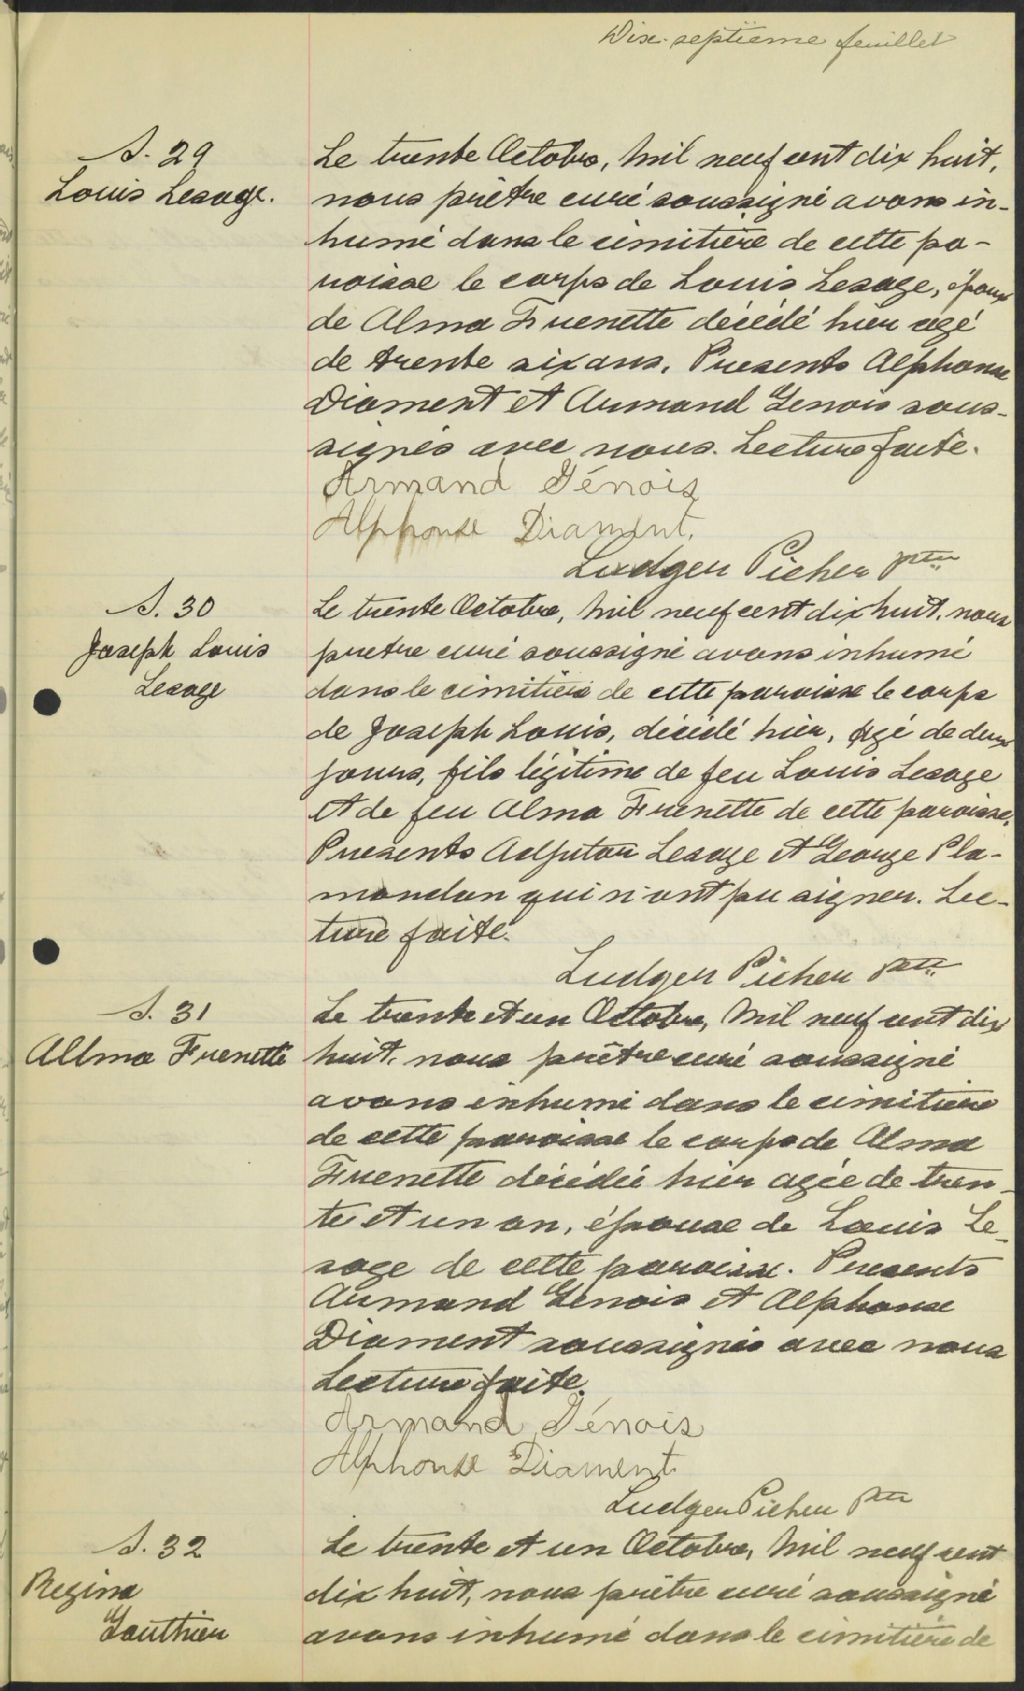 Dix-septième feuillet
S. 29
Louis Lesage.
Le trente Octobre, Mil neuf cent dix huit,
nous prêtre curé soussigné avons in-
humé dans le cimitière de cette pa-
roisse le corps de Louis Lesage, époux
de Alma Frenette décédé hier agé
de trente six ans. Presents Alphonse
Diament et Armand Genois sous-
signés avec nous. Lecture faite.
Armand Génois
Alphonse Diament.
Ludger Picher ptre
S. 30
Joseph Louis
Lesage
Le trente Octobre, Mil neuf cent dix huit, nous
pretre curé soussigné avons inhumé
dans le cimitière de cette paroisse le corps
de Joseph Louis, décédé hier, agé de deux
jours, fils légitime de feu Louis Lesage
et de feu Alma Frenette de cette paroisse.
Presents Adjutor Lesage et George Pla-
mondon qui n'ont pu signer. Lec-
ture faite.
Ludger Picher Ptre
S. 31
Allma Frenette
Le trente et un Octobre, Mil neuf cent dix
huit, nous prêtre curé soussigné
avons inhumé dans le cimitière
de cette paroisse le corps de Alma
Frenette décédée hier agée de tren-
te et un an, épouse de Louis Le-
sage de cette paroisse. Presents
Armand Genois et Alphonse
Diament soussignés avec nous
Lecture faite.
Armand Génois
Alphonse Diament
Ludger Picher Ptre
S. 32
Regina
Gauthier
Le trente et un Octobre, Mil neuf cent
dix huit, nous prêtre curé soussigné
avons inhumé dans le cimitière de